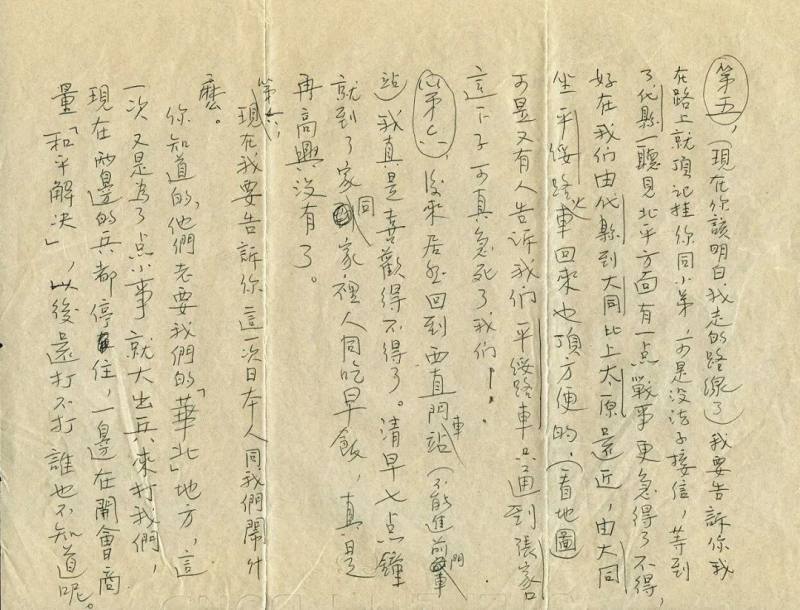 第五，(現在你該明白我走的路線了)我要告訴你我
在路上就頂記挂你同小弟，可是没法子接信，等到
了代縣一聽見北平方面有一点戰事更急得了不得，
好在我們由代縣到大同比上太原還近，由大同
坐平綏路火車回來也頂方便的，(看地圖)
可是又有人告訴我們平綏路車只通到張家口
這下子可真急死了我们！
第六，後來居然回到西直門車站(不能進前門車
站)我真是喜歡得不得了。清早七点鐘
就到了家同家裡人同吃早飯，真是
再高興没有了。
第六，現在我要告訴你這一次日本人同我們鬧什
麽。
你知道的，他們老要我們的「華北」地方，這
一次又是為了点小事就大出兵來打我們，
現在兩邊的兵都停住，一邊在開會商
量「和平解決」，以後還打不打誰也不知道呢。